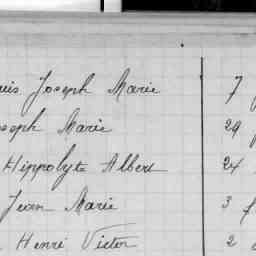 uis Joseph Marie 7
oseph Marie 29
Hippolyte Albert 24
Jean Marie 3
Henri Victor 2